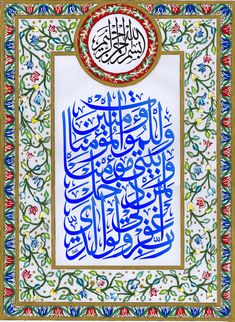 بسم الله الرحمن الرحيم
رب اغفر لي ولوالدي
ولمن دخل
بيتي مؤمنا
وللمؤمنين والمؤمنات